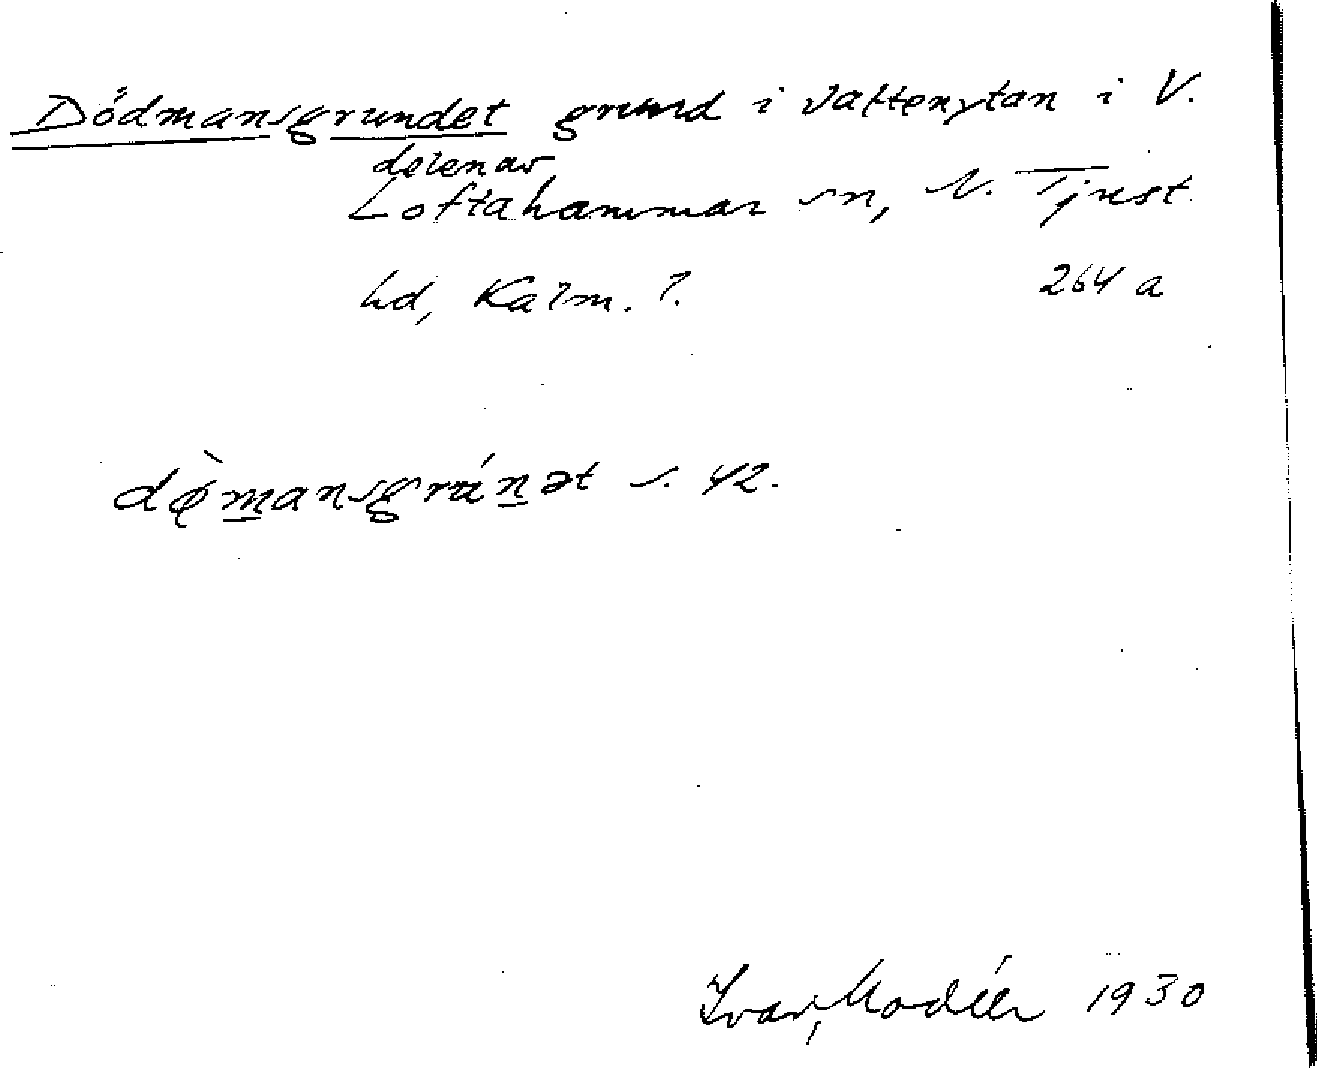 Dödmansgrundet grund i vattenytan i V.
delen av
Loftahammar sn, N. Tjust
hd, Kalm. l.    264 a
dø̨̀mansgrúnət s. 42.
Ivar Modéer 1930